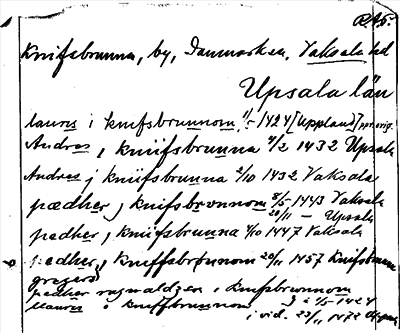 RA5.
Knifsbrunna, by, Danmarks sn, Vaksala hd
Upsala län
lauris i knifsbrunnom 1/5 1424 [Uppland] pp orig.
Andres, i kniifsbrunna 2/2 1432 Upsala
Andres j kniifsbrunna 2/10 1432 Vaksala
pædher j knifsbrønnom 8/5 1443 Vaksala
20/11 — Upsala
pedher j knifsbrunna 4/10 1447 Vaksala
pedher j kniffsbrønnom 20/11 1457 Knifsbrunna
gregers
pedher ragnaldzson i knifsbrunnom
lauris i kniffbrunnom } 2 1/5 1424
i vid. 23/11 1472 Uppsala